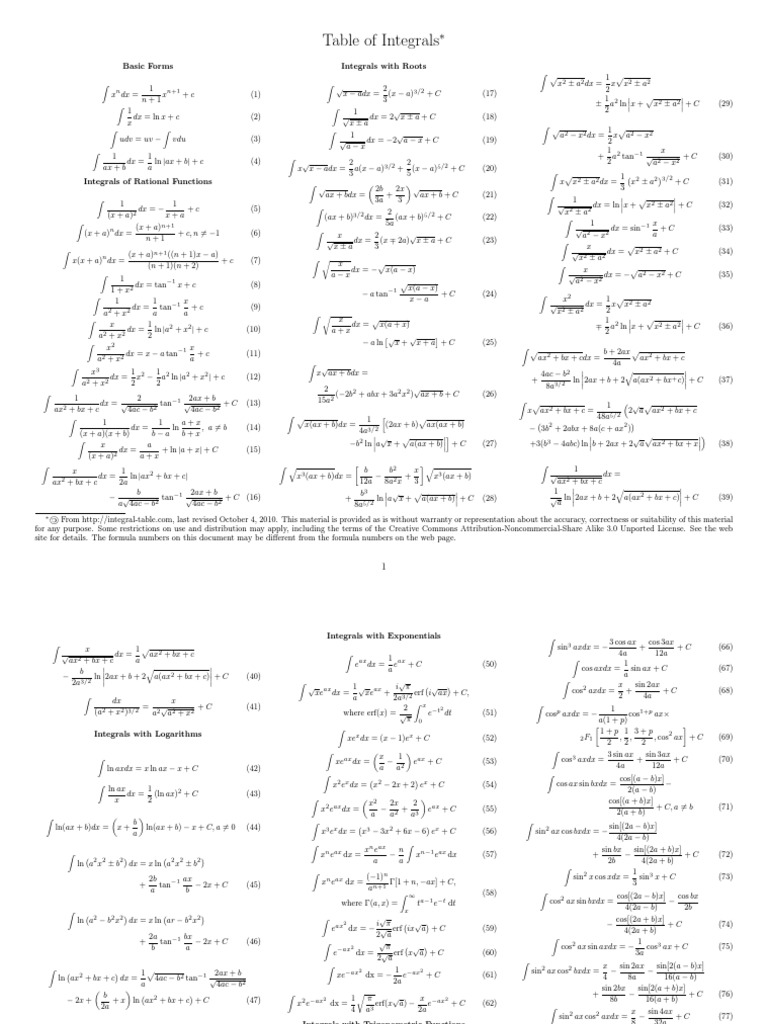 Table of Integrals*
Basic Forms
∫ xⁿdx = 1/(n+1) xⁿ⁺¹ + c (1)
∫ 1/x dx = ln x + c (2)
∫ udv = uv − ∫ vdu (3)
∫ 1/(ax + b) dx = 1/a ln |ax + b| + c (4)
Integrals of Rational Functions
∫ 1/(x + a)² dx = − 1/(x + a) + c (5)
∫ (x + a)ⁿdx = (x + a)ⁿ⁺¹/(n + 1) + c, n ≠ −1 (6)
∫ x(x + a)ⁿdx = (x + a)ⁿ⁺¹((n + 1)x − a)/((n + 1)(n + 2)) + c (7)
∫ 1/(1 + x²) dx = tan⁻¹ x + c (8)
∫ 1/(a² + x²) dx = 1/a tan⁻¹ x/a + c (9)
∫ x/(a² + x²) dx = 1/2 ln |a² + x²| + c (10)
∫ x²/(a² + x²) dx = x − a tan⁻¹ x/a + c (11)
∫ x³/(a² + x²) dx = 1/2 x² − 1/2 a² ln |a² + x²| + c (12)
∫ 1/(ax² + bx + c) dx = 2/√(4ac − b²) tan⁻¹ (2ax + b)/√(4ac − b²) + C (13)
∫ 1/((x + a)(x + b)) dx = 1/(b − a) ln (a + x)/(b + x), a ≠ b (14)
∫ x/(x + a)² dx = a/(a + x) + ln |a + x| + C (15)
∫ x/(ax² + bx + c) dx = 1/2a ln |ax² + bx + c|
− b/(a√(4ac − b²)) tan⁻¹ (2ax + b)/√(4ac − b²) + C (16)
Integrals with Roots
∫ √(x − a)dx = 2/3 (x − a)^(3/2) + C (17)
∫ 1/√(x ± a) dx = 2√(x ± a) + C (18)
∫ 1/√(a − x) dx = −2√(a − x) + C (19)
∫ x√(x − a)dx = 2/3 a(x − a)^(3/2) + 2/5 (x − a)^(5/2) + C (20)
∫ √(ax + b)dx = (2b/3a + 2x/3) √(ax + b) + C (21)
∫ (ax + b)^(3/2)dx = 2/5a (ax + b)^(5/2) + C (22)
∫ x/√(x ± a) dx = 2/3 (x ∓ 2a)√(x ± a) + C (23)
∫ √(x/(a − x)) dx = −√(x(a − x))
− a tan⁻¹ √(x(a − x))/(x − a) + C (24)
∫ √(x/(a + x)) dx = √(x(a + x))
− a ln [√x + √(x + a)] + C (25)
∫ x√(ax + b)dx =
2/15a² (−2b² + abx + 3a²x²)√(ax + b) + C (26)
∫ √(x(ax + b))dx = 1/4a^(3/2) [(2ax + b)√(ax(ax + b))
−b² ln |a√x + √(a(ax + b))|] + C (27)
∫ √(x³(ax + b))dx = [b/12a − b²/8a²x + x/3] √(x³(ax + b))
+ b³/8a^(5/2) ln |a√x + √(a(ax + b))| + C (28)
∫ √(x² ± a²)dx = 1/2 x√(x² ± a²)
± 1/2 a² ln |x + √(x² ± a²)| + C (29)
∫ √(a² − x²)dx = 1/2 x√(a² − x²)
+ 1/2 a² tan⁻¹ x/√(a² − x²) + C (30)
∫ x√(x² ± a²)dx = 1/3 (x² ± a²)^(3/2) + C (31)
∫ 1/√(x² ± a²) dx = ln |x + √(x² ± a²)| + C (32)
∫ 1/√(a² − x²) dx = sin⁻¹ x/a + C (33)
∫ x/√(x² ± a²) dx = √(x² ± a²) + C (34)
∫ x/√(a² − x²) dx = −√(a² − x²) + C (35)
∫ x²/√(x² ± a²) dx = 1/2 x√(x² ± a²)
∓ 1/2 a² ln |x + √(x² ± a²)| + C (36)
∫ √(ax² + bx + c)dx = (b + 2ax)/4a √(ax² + bx + c)
+ (4ac − b²)/8a^(3/2) ln |2ax + b + 2√(a(ax² + bx+c))| + C (37)
∫ x√(ax² + bx + c) = 1/48a^(5/2) (2√a √(ax² + bx + c)
− (3b² + 2abx + 8a(c + ax²))
+3(b³ − 4abc) ln |b + 2ax + 2√a√(ax² + bx + x)|) (38)
∫ 1/√(ax² + bx + c) dx =
1/√a ln |2ax + b + 2√(a(ax² + bx + c))| + C (39)
* From http://integral-table.com, last revised October 4, 2010. This material is provided as is without warranty or representation about the accuracy, correctness or suitability of this material
for any purpose. Some restrictions on use and distribution may apply, including the terms of the Creative Commons Attribution-Noncommercial-Share Alike 3.0 Unported License. See the web
site for details. The formula numbers on this document may be different from the formula numbers on the web page.
1
∫ x/√(ax² + bx + c) dx = 1/a √(ax² + bx + c)
− b/2a^(3/2) ln |2ax + b + 2√(a(ax² + bx + c))| + C (40)
∫ dx/(a² + x²)^(3/2) = x/(a²√(a² + x²)) + C (41)
Integrals with Logarithms
∫ ln axdx = x ln ax − x + C (42)
∫ ln ax/x dx = 1/2 (ln ax)² + C (43)
∫ ln(ax + b)dx = (x + b/a) ln(ax + b) − x + C, a ≠ 0 (44)
∫ ln (a²x² ± b²) dx = x ln (a²x² ± b²)
+ 2b/a tan⁻¹ ax/b − 2x + C (45)
∫ ln (a² − b²x²) dx = x ln (ar − b²x²)
+ 2a/b tan⁻¹ bx/a − 2x + C (46)
∫ ln (ax² + bx + c) dx = 1/a √(4ac − b²) tan⁻¹ (2ax + b)/√(4ac − b²)
− 2x + (b/2a + x) ln (ax² + bx + c) + C (47)
Integrals with Exponentials
∫ e^(ax)dx = 1/a e^(ax) + C (50)
∫ √x e^(ax)dx = 1/a √x e^(ax) + i√π/2a^(3/2) erf (i√(ax)) + C,
where erf(x) = 2/√π ∫₀ˣ e^(−t²) dt (51)
∫ xeˣdx = (x − 1)eˣ + C (52)
∫ xe^(ax)dx = (x/a − 1/a²) e^(ax) + C (53)
∫ x²eˣdx = (x² − 2x + 2) eˣ + C (54)
∫ x²e^(ax)dx = (x²/a − 2x/a² + 2/a³) e^(ax) + C (55)
∫ x³eˣdx = (x³ − 3x² + 6x − 6) eˣ + C (56)
∫ xⁿe^(ax) dx = xⁿe^(ax)/a − n/a ∫ xⁿ⁻¹e^(ax) dx (57)
∫ xⁿe^(ax) dx = (−1)ⁿ/aⁿ⁺¹ Γ[1 + n, −ax] + C,
where Γ(a, x) = ∫ₓ^∞ t^(a−1)e^(−t) dt (58)
∫ e^(ax²) dx = − i√π/2√a erf (ix√a) + C (59)
∫ e^(−ax²) dx = √π/2√a erf (x√a) + C (60)
∫ xe^(−ax²) dx = − 1/2a e^(−ax²) + C (61)
∫ x²e^(−ax²) dx = 1/4 √(π/a³) erf(x√a) − x/2a e^(−ax²) + C (62)
Integrals with Trigonometric Functions
∫ sin³ axdx = − 3 cos ax/4a + cos 3ax/12a + C (66)
∫ cos axdx = 1/a sin ax + C (67)
∫ cos² axdx = x/2 + sin 2ax/4a + C (68)
∫ cosᵖ axdx = − 1/(a(1 + p)) cos¹⁺ᵖ ax×
₂F₁ [(1 + p)/2, 1/2, (3 + p)/2, cos² ax] + C (69)
∫ cos³ axdx = 3 sin ax/4a + sin 3ax/12a + C (70)
∫ cos ax sin bxdx = cos[(a − b)x]/2(a − b) −
cos[(a + b)x]/2(a + b) + C, a ≠ b (71)
∫ sin² ax cos bxdx = − sin[(2a − b)x]/4(2a − b)
+ sin bx/2b − sin[(2a + b)x]/4(2a + b) + C (72)
∫ sin² x cos xdx = 1/3 sin³ x + C (73)
∫ cos² ax sin bxdx = cos[(2a − b)x]/4(2a − b) − cos bx/2b
− cos[(2a + b)x]/4(2a + b) + C (74)
∫ cos² ax sin axdx = − 1/3a cos³ ax + C (75)
∫ sin² ax cos² bxdx = x/4 − sin 2ax/8a − sin[2(a − b)x]/16(a − b)
+ sin 2bx/8b − sin[2(a + b)x]/16(a + b) + C (76)
∫ sin² ax cos² axdx = x/8 − sin 4ax/32a + C (77)